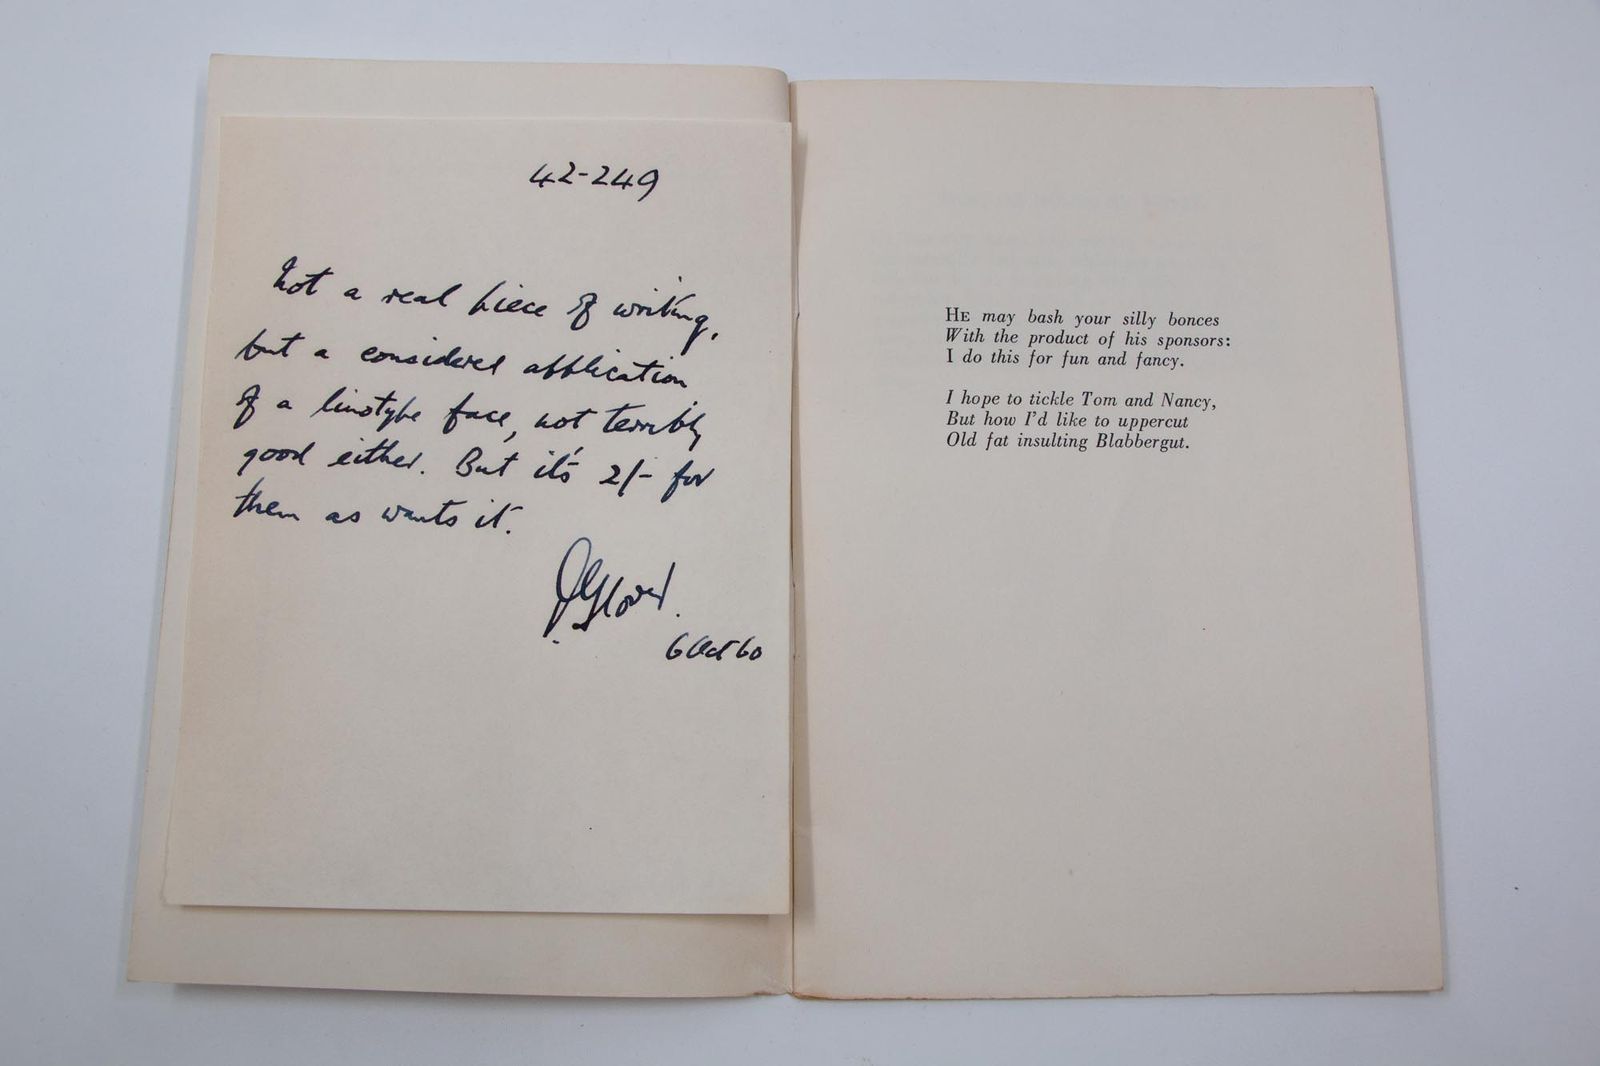 42-249
Not a real piece of writing,
but a considered application
of a linotype face, not terribly
good either. But it's 2/- for
them as wants it.
D Glover.
6 Oct 60
HE may bash your silly bonces
With the product of his sponsors:
I do this for fun and fancy.
I hope to tickle Tom and Nancy,
But how I'd like to uppercut
Old fat insulting Blabbergut.